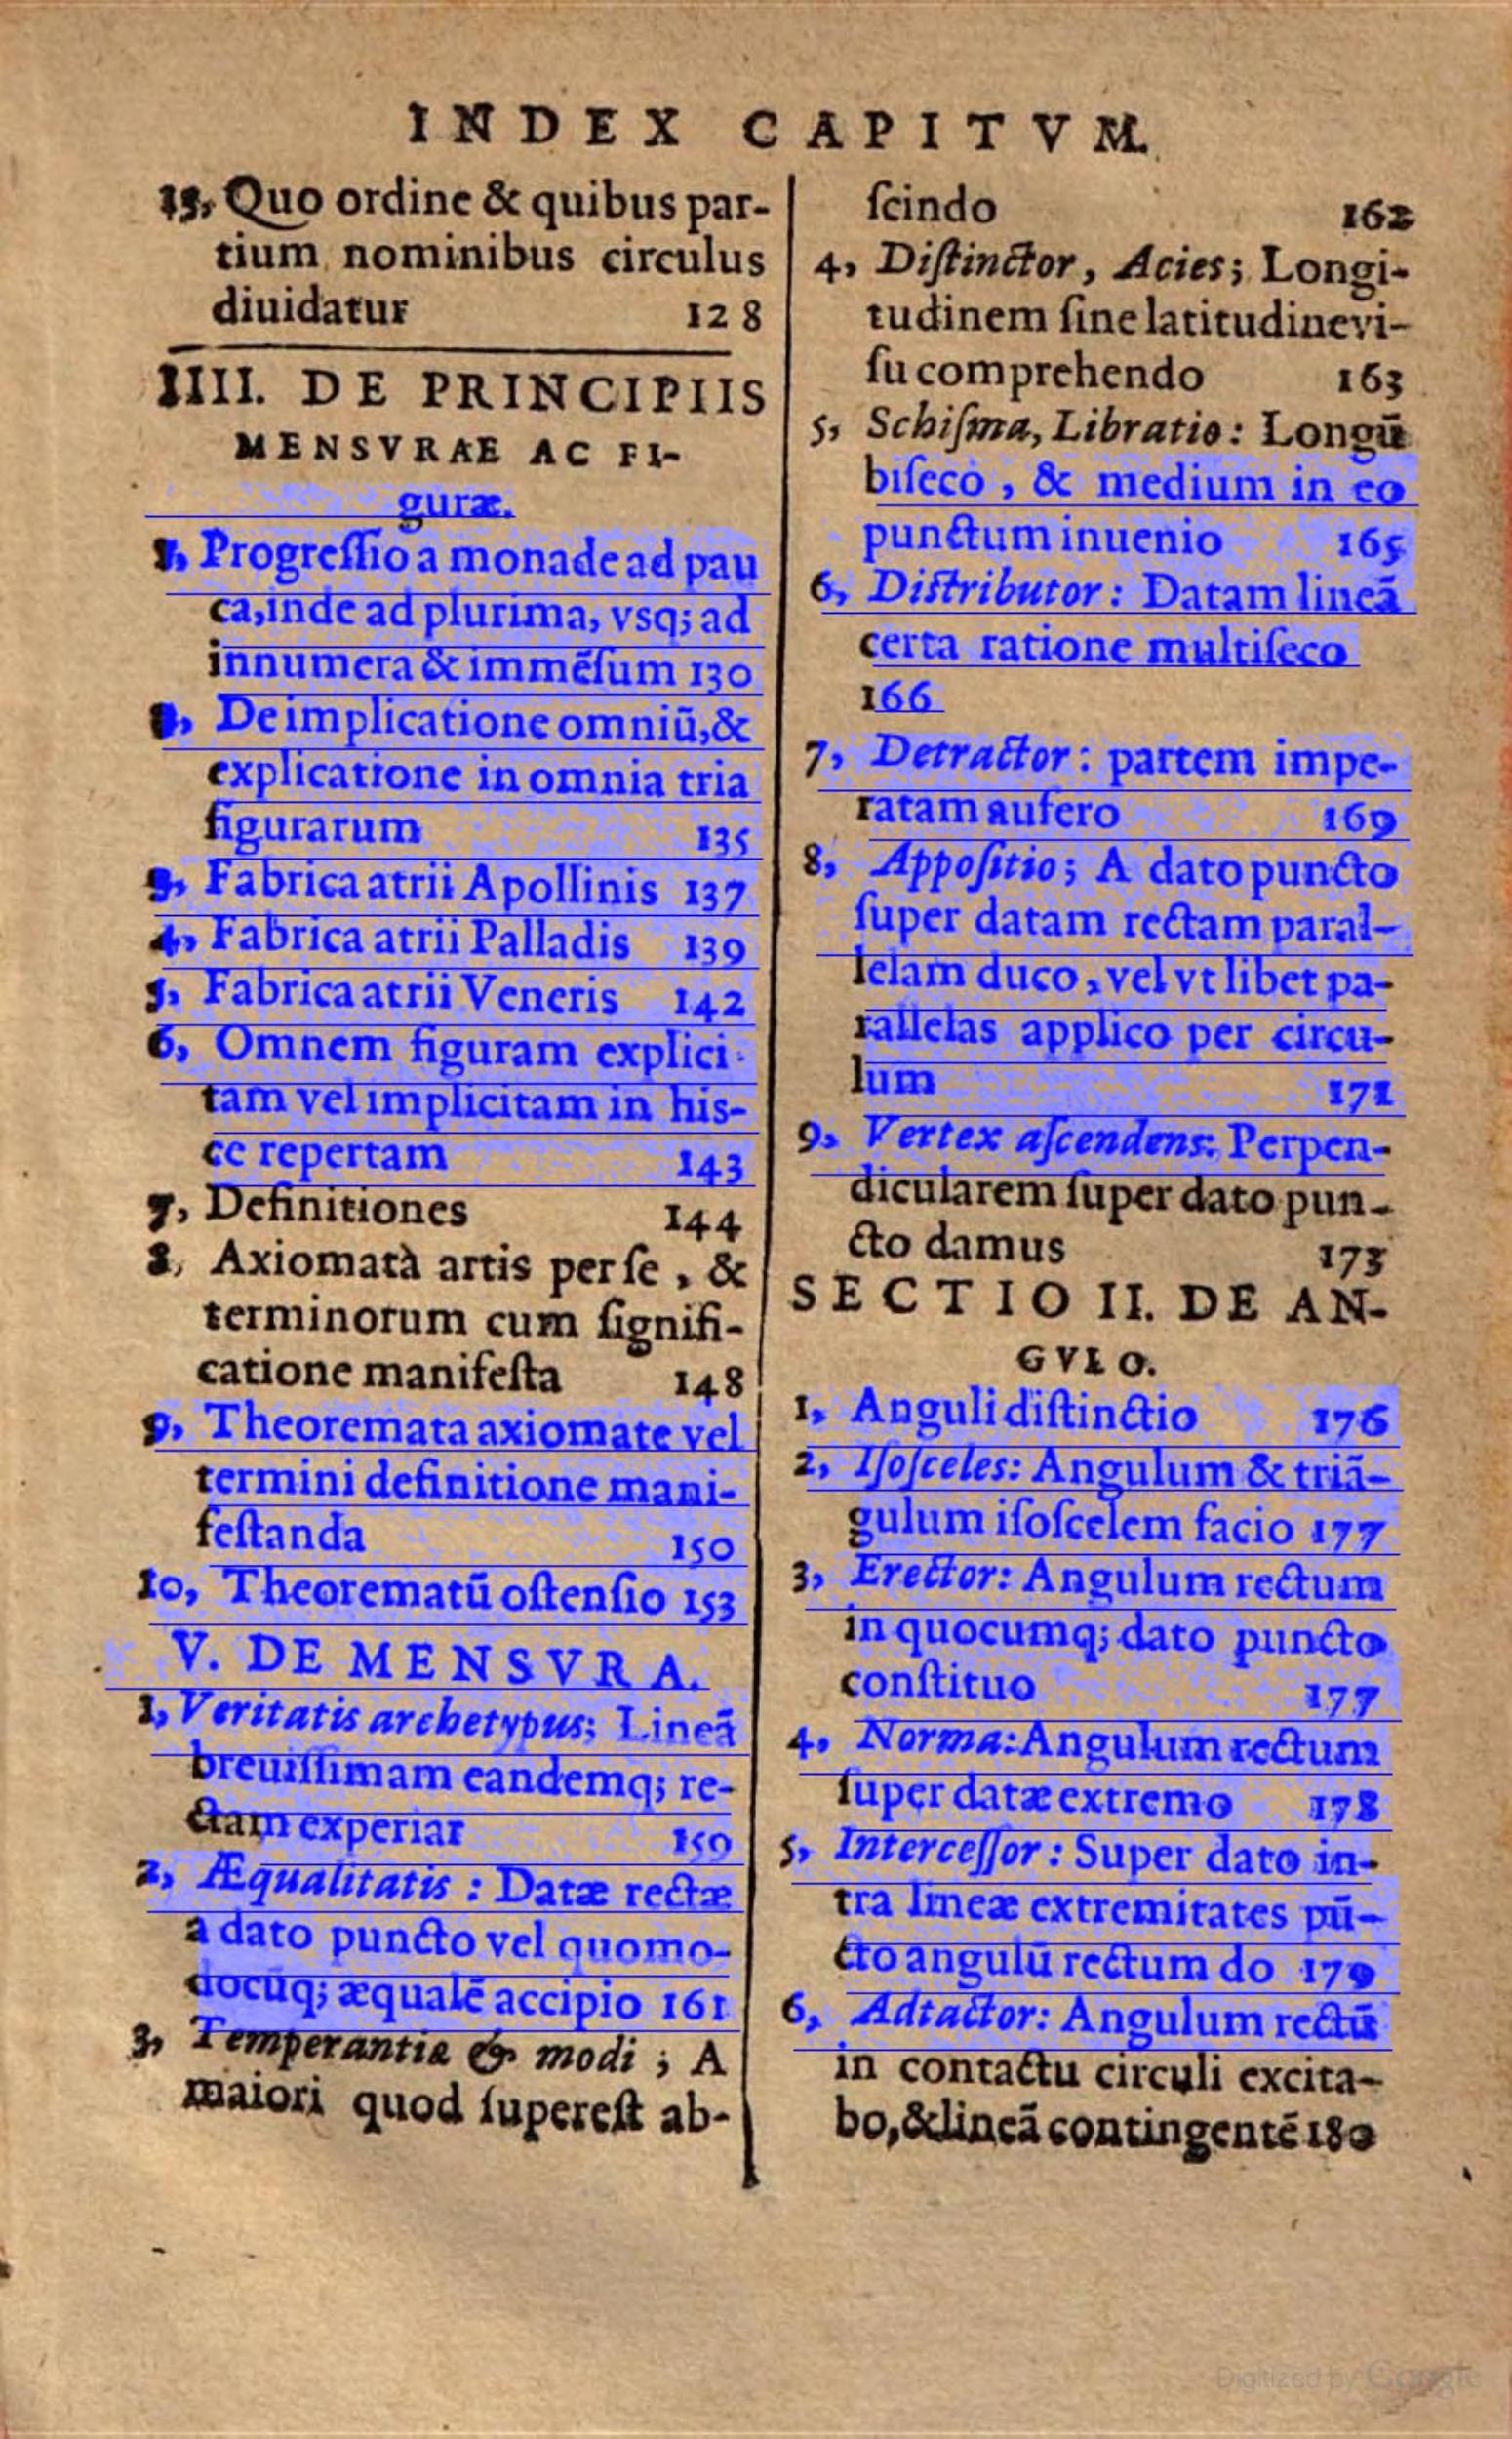 INDEX CAPITVM.
13, Quo ordine & quibus par-
tium nominibus circulus
diuidatur 128
IIII. DE PRINCIPIIS
MENSVRAE AC FI-
guræ.
1, Progreſſio a monade ad pau
ca, inde ad plurima, vsq; ad
innumera & immẽſum 130
2, De implicatione omniũ, &
explicatione in omnia tria
figurarum 135
3, Fabrica atrii Apollinis 137
4, Fabrica atrii Palladis 139
5, Fabrica atrii Veneris 142
6, Omnem figuram explici
tam vel implicitam in his-
ce repertam 143
7, Definitiones 144
8, Axiomatà artis per ſe, &
terminorum cum ſignifi-
catione manifeſta 148
9, Theoremata axiomate vel
termini definitione mani-
feſtanda 150
10, Theorematũ oſtenſio 153
V. DE MENSVRA.
1, Veritatis archetypus; Lineã
breuiſſimam eandemq; re-
ctam experiar 159
2, Æqualitatis: Datæ rectæ
a dato puncto vel quomo-
docũq; æqualẽ accipio 161
3, Temperantiæ & modi; A
maiori quod ſupereſt ab-
ſcindo 162
4, Diſtinctor, Acies; Longi-
tudinem ſine latitudine vi-
ſu comprehendo 163
5, Schiſma, Libratio: Longũ
biſeco, & medium in eo
punctum inuenio 165
6, Diſtributor: Datam lineã
certa ratione multiſeco
166
7, Detractor: partem impe-
ratam aufero 169
8, Appoſitio; A dato puncto
ſuper datam rectam paral-
lelam duco, vel vt libet pa-
rallelas applico per circu-
lum 171
9, Vertex aſcendens: Perpen-
dicularem ſuper dato pun-
cto damus 173
SECTIO II. DE AN-
GVLO.
1, Anguli diſtinctio 176
2, Iſoſceles: Angulum & triã-
gulum iſoſcelem facio 177
3, Erector: Angulum rectum
in quocumq; dato puncto
conſtituo 177
4, Norma: Angulum rectum
ſuper datæ extremo 178
5, Interceſſor: Super dato in-
tra lineæ extremitates pũ-
cto angulũ rectum do 179
6, Adtactor: Angulum rectũ
in contactu circuli excita-
bo, & lineã contingentẽ 180
Digitized by Google